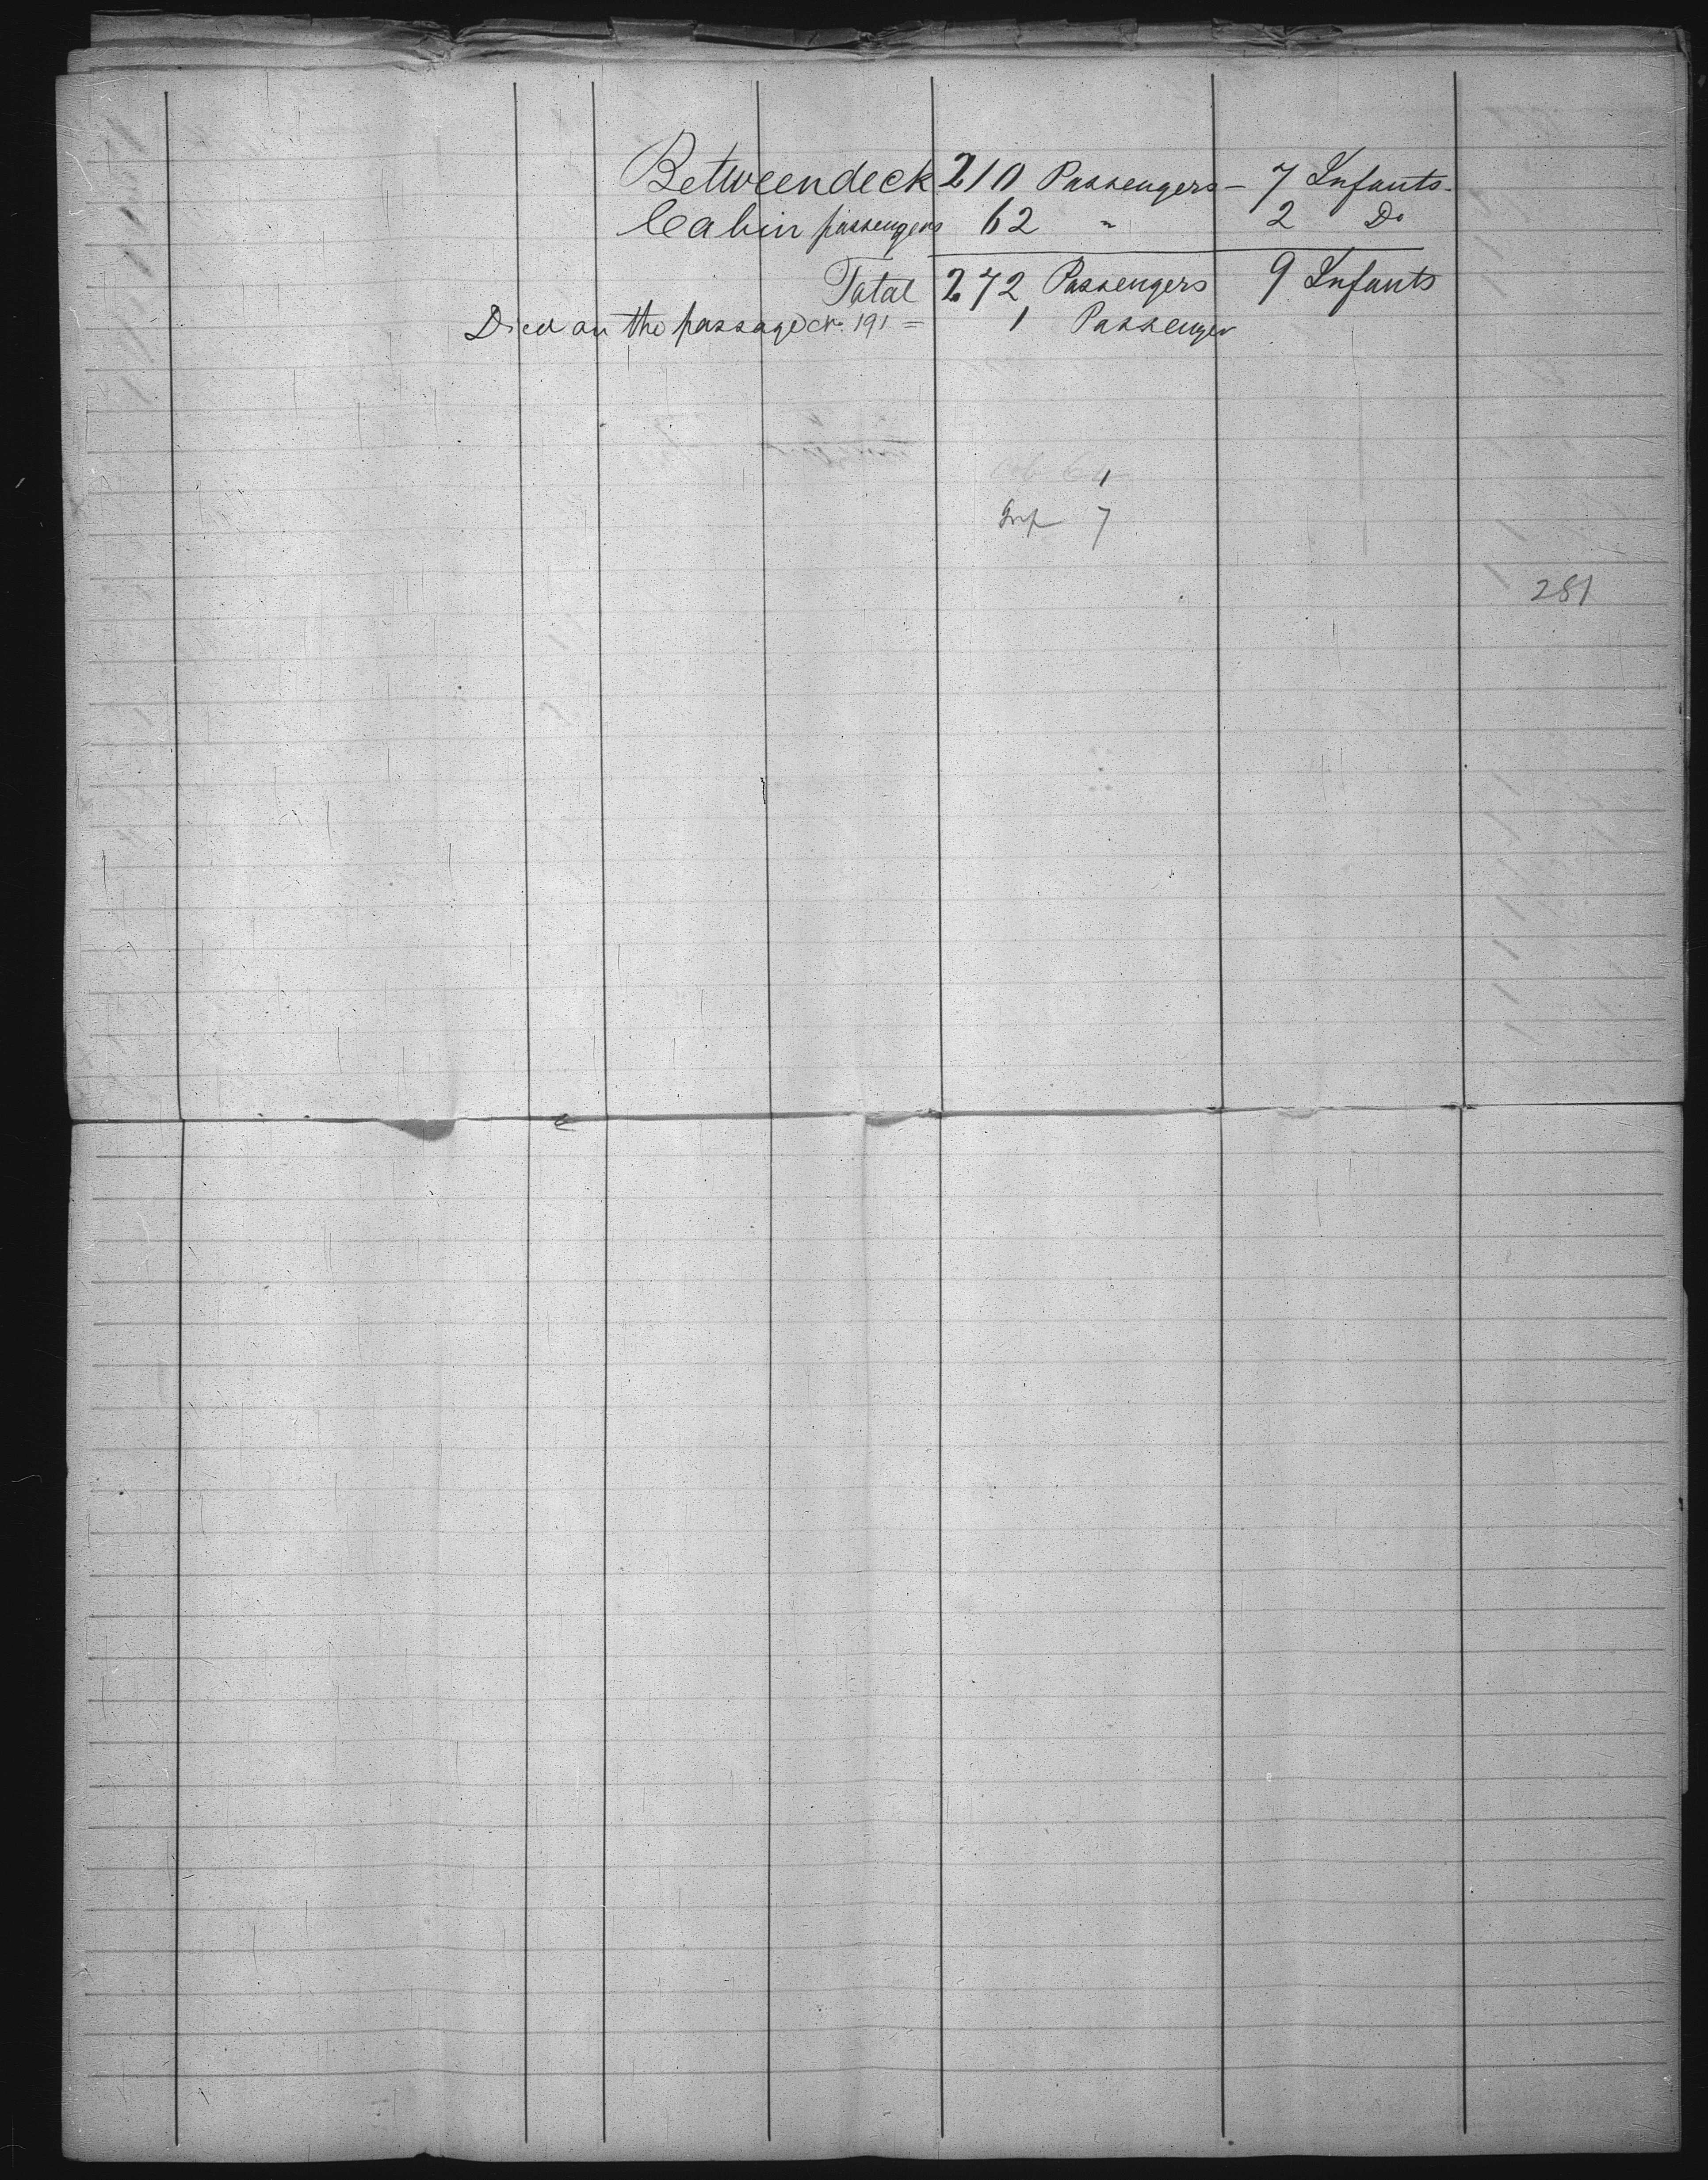 Betweendeck 210 Passengers – 7 Infants.
Cabin passengers 62 " 2 Do
Total 272 Passengers 9 Infants
Died on the passage Nr. 191 = 1 Passenger
Inf 7
281